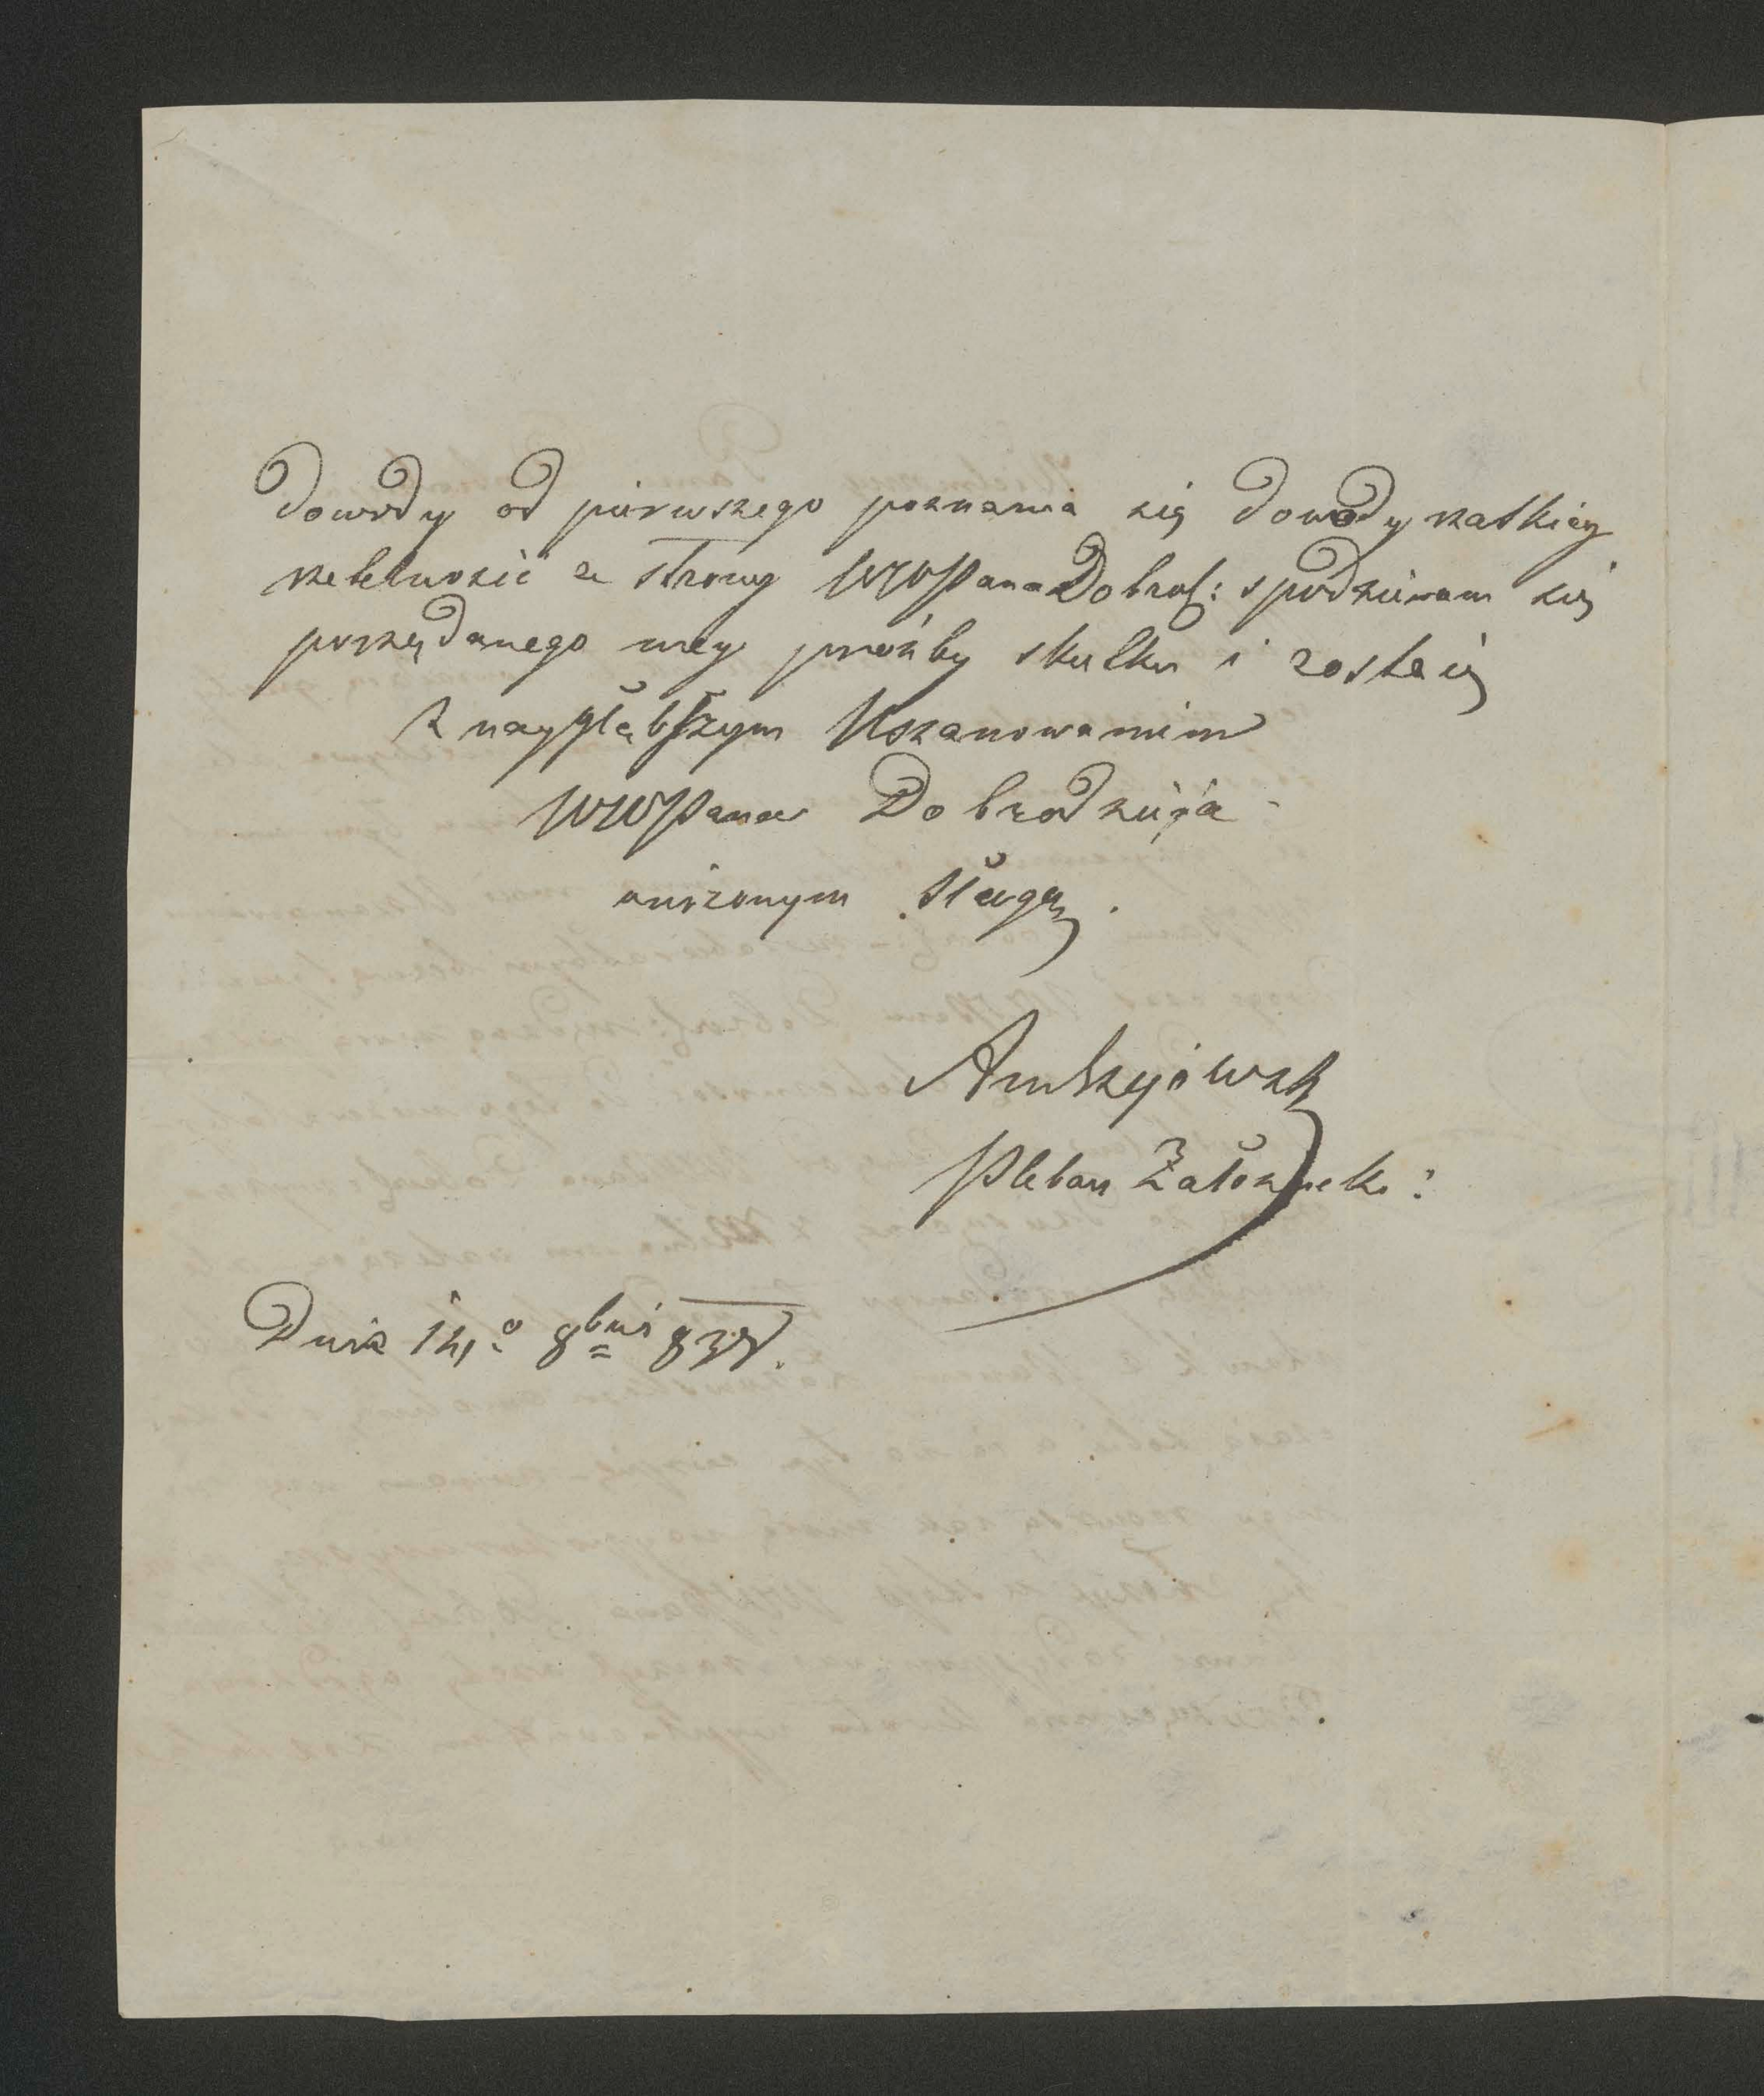 Dowody od pierwszego poznania się dowody rzadkiey
rzetelności ze strony WWPana Dobrodz: spodziewam się
pożądanego mey prośby skutku i zostaię
z naygłębszym Uszanowaniem
WWPana Dobrodzieja
uniżonym sługą.
Andrzejowski
Pleban Załoziecki:
Dnia 14.º 8bris